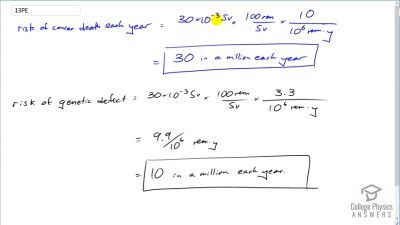 13PE
risk of cancer death each year = 30×10⁻³ Sv × 100 rem/Sv × 10/10⁶ rem·y
= 30 in a million each year
risk of genetic defect = 30×10⁻³ Sv × 100 rem/Sv × 3.3/10⁶ rem·y
= 9.9/10⁶ rem·y
= 10 in a million each year.
College Physics
ANSWERS